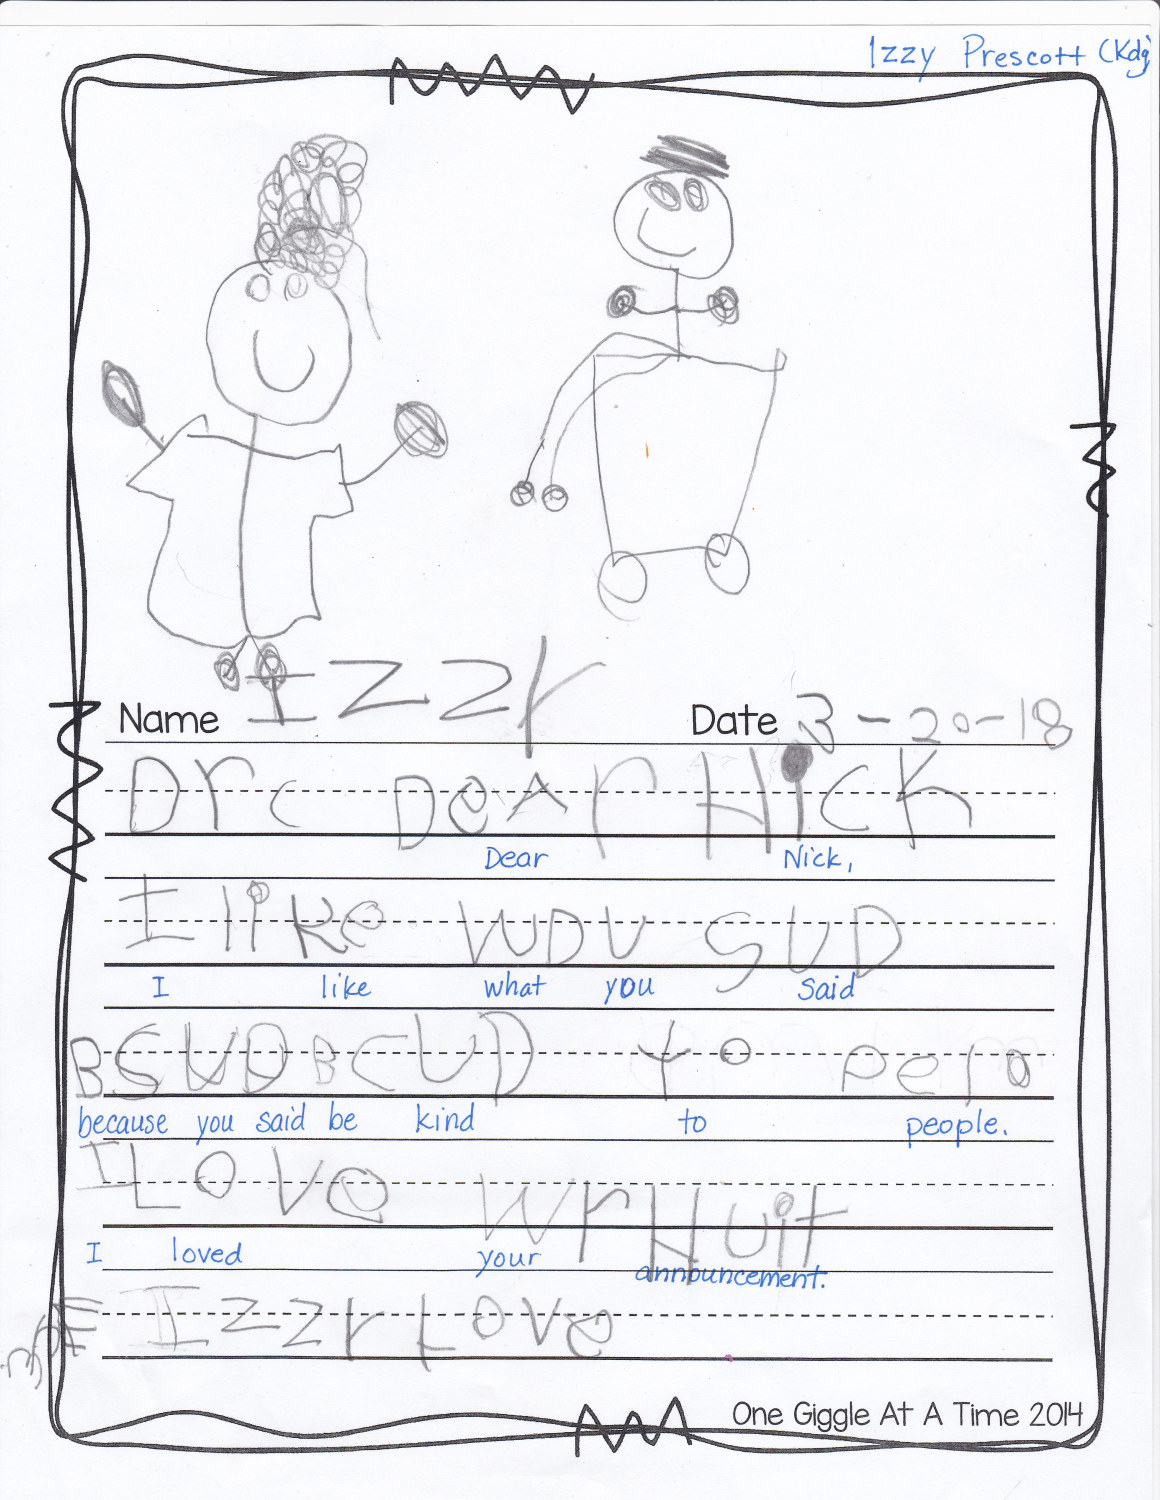 Izzy Prescott (Kdg)
Name Izzy Date 3-20-18
Drc DeAr Hick
Dear Nick,
I like WDU SUD
I like what you said
BSUDBCUD To
because you said be kind to people.
I Love WrHuit
I loved your announcement.
Izzy Love
One Giggle At A Time 2014